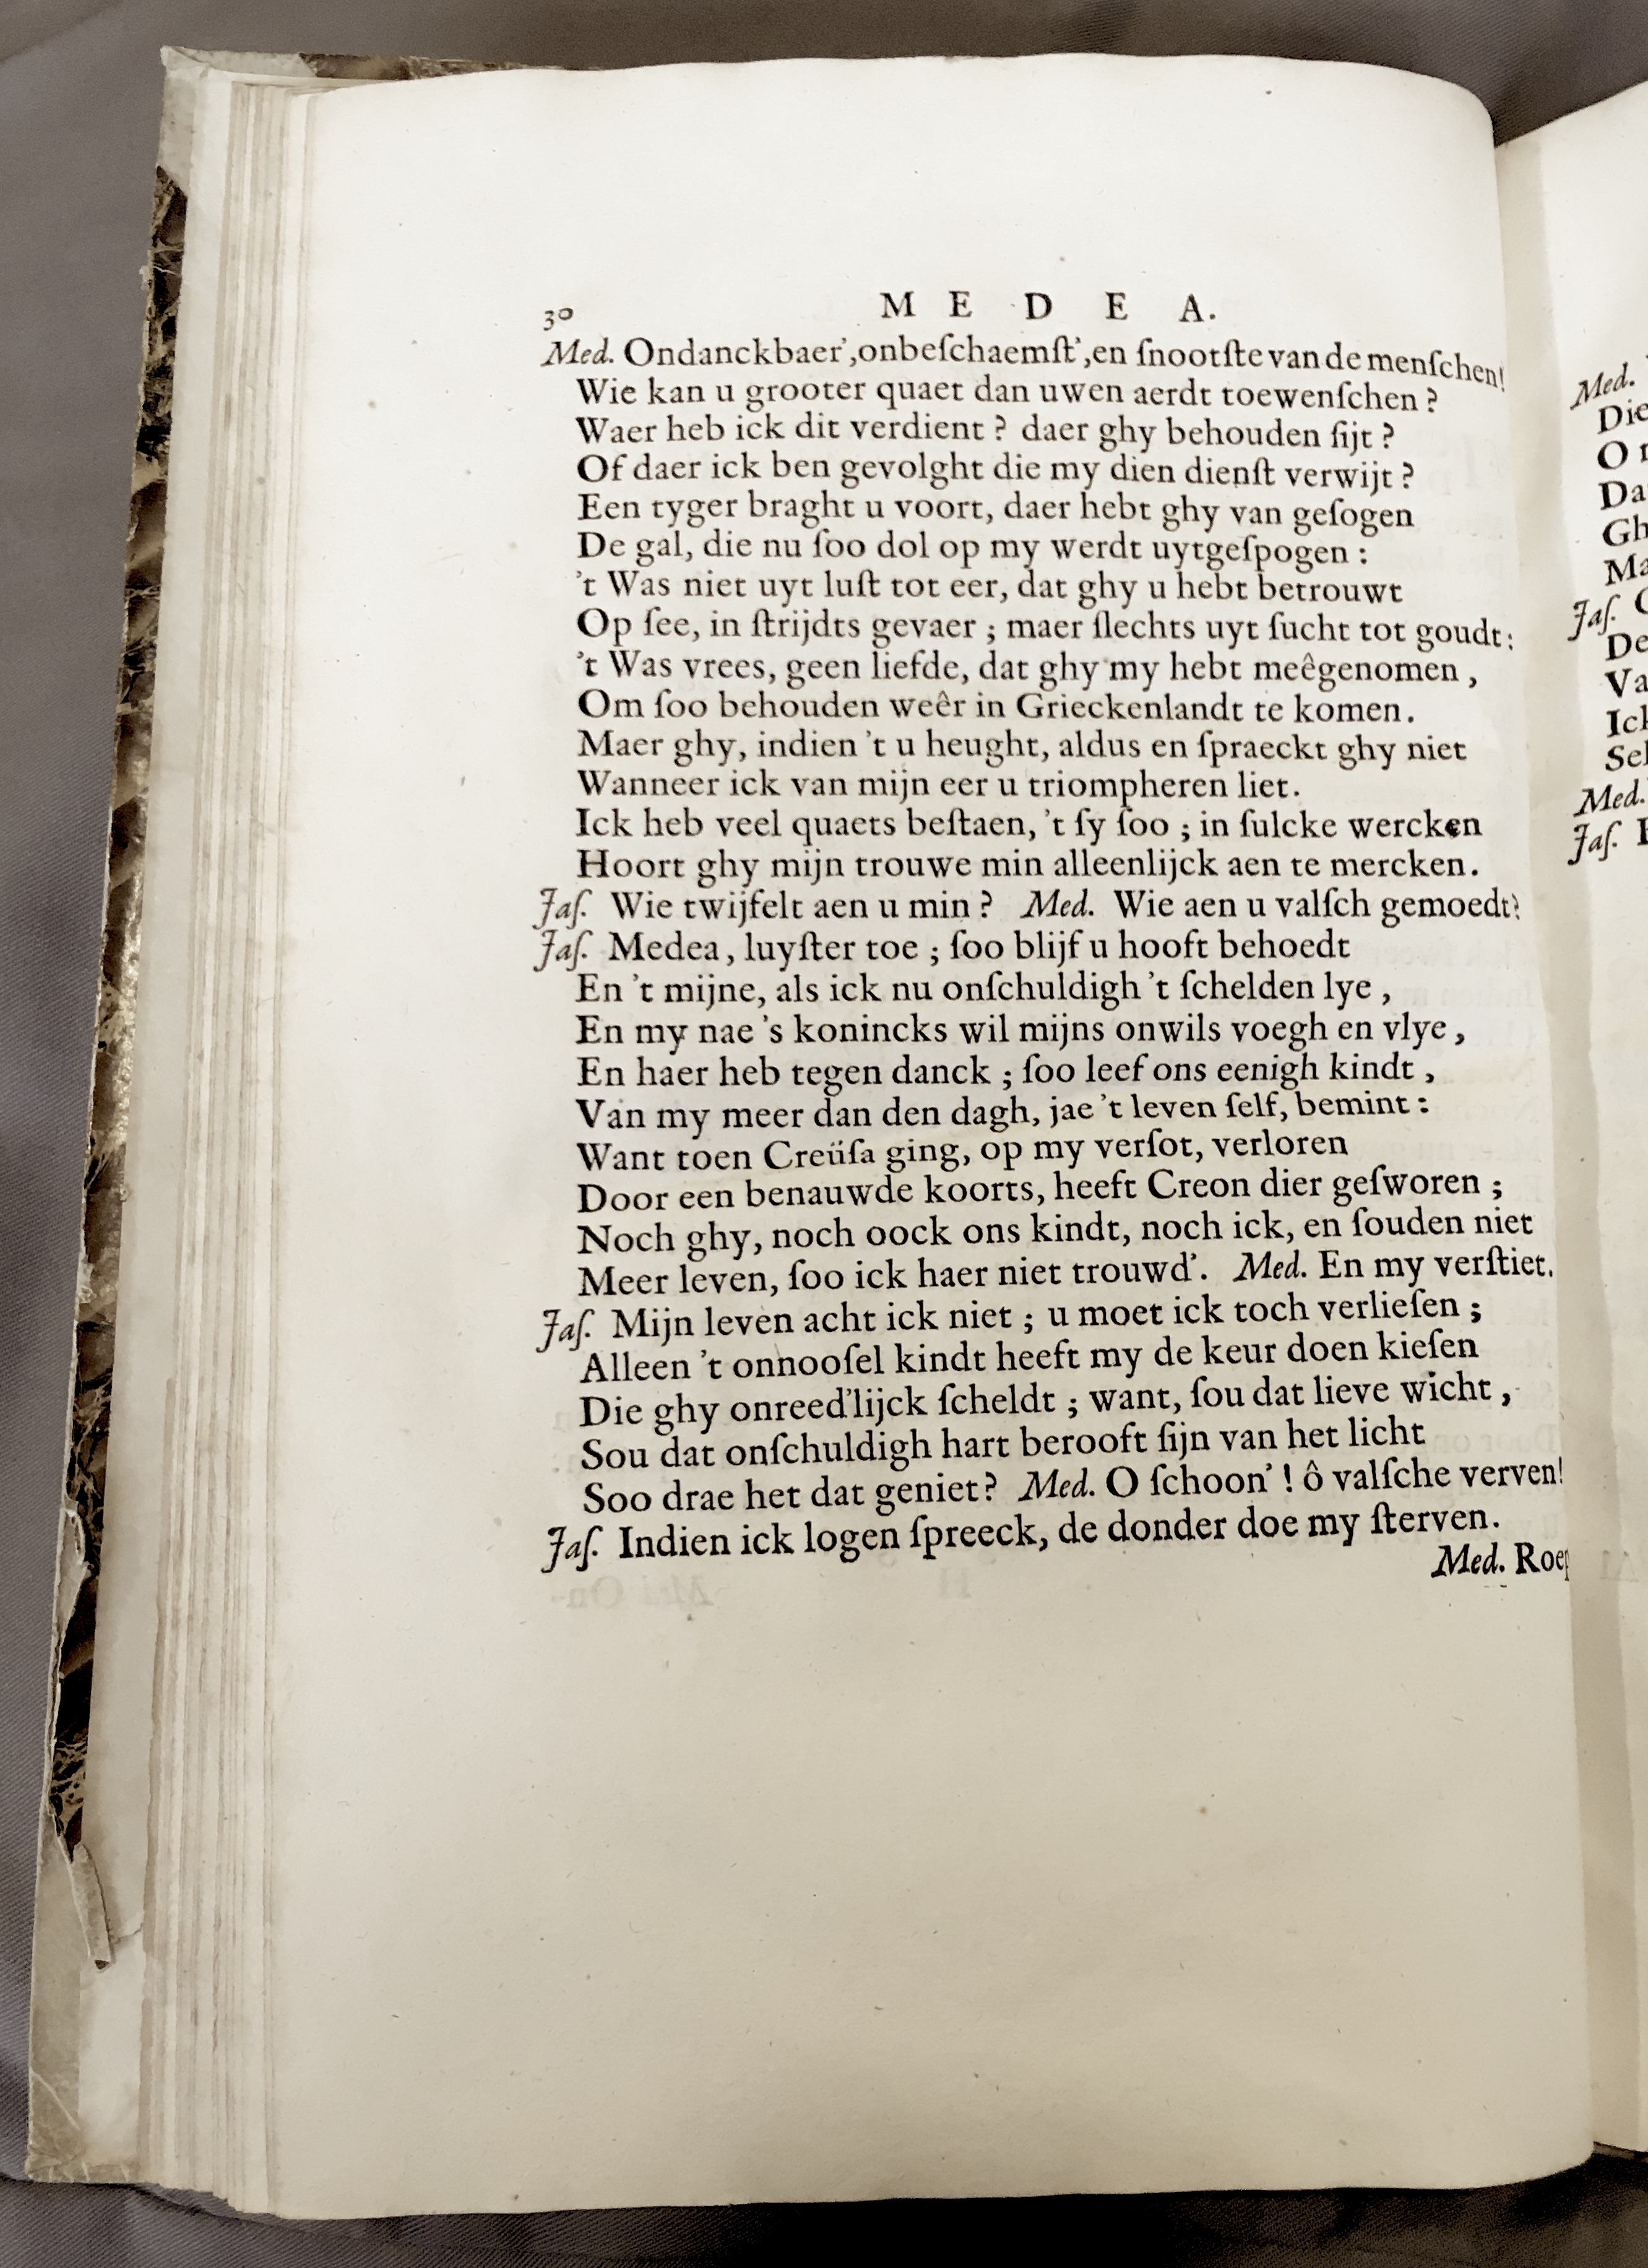 30 M E D E A.
Med. Ondanckbaer', onbeſchaemſt', en ſnootſte van de menſchen!
Wie kan u grooter quaet dan uwen aerdt toewenſchen?
Waer heb ick dit verdient? daer ghy behouden ſijt?
Of daer ick ben gevolght die my dien dienſt verwijt?
Een tyger braght u voort, daer hebt ghy van geſogen
De gal, die nu ſoo dol op my werdt uytgeſpogen:
't Was niet uyt luſt tot eer, dat ghy u hebt betrouwt
Op ſee, in ſtrijdts gevaer; maer ſlechts uyt ſucht tot goudt:
't Was vrees, geen liefde, dat ghy my hebt meêgenomen,
Om ſoo behouden weêr in Grieckenlandt te komen.
Maer ghy, indien 't u heught, aldus en ſpraeckt ghy niet
Wanneer ick van mijn eer u triompheren liet.
Ick heb veel quaets beſtaen, 't ſy ſoo; in ſulcke wercken
Hoort ghy mijn trouwe min alleenlijck aen te mercken.
Jaſ. Wie twijfelt aen u min? Med. Wie aen u valſch gemoedt?
Jaſ. Medea, luyſter toe; ſoo blijf u hooft behoedt
En 't mijne, als ick nu onſchuldigh 't ſchelden lye,
En my nae 's konincks wil mijns onwils voegh en vlye,
En haer heb tegen danck; ſoo leef ons eenigh kindt,
Van my meer dan den dagh, jae 't leven ſelf, bemint:
Want toen Creüſa ging, op my verſot, verloren
Door een benauwde koorts, heeft Creon dier geſworen;
Noch ghy, noch oock ons kindt, noch ick, en ſouden niet
Meer leven, ſoo ick haer niet trouwd'. Med. En my verſtiet.
Jaſ. Mijn leven acht ick niet; u moet ick toch verlieſen;
Alleen 't onnooſel kindt heeft my de keur doen kieſen
Die ghy onreed'lijck ſcheldt; want, ſou dat lieve wicht,
Sou dat onſchuldigh hart berooft ſijn van het licht
Soo drae het dat geniet? Med. O ſchoon'! ô valſche verven!
Jaſ. Indien ick logen ſpreeck, de donder doe my ſterven.
Med. Roep
Med.
Die
O
Da
Gh
Ma
Jaſ.
De
Va
Ick
Sel
Med.
Jaſ.